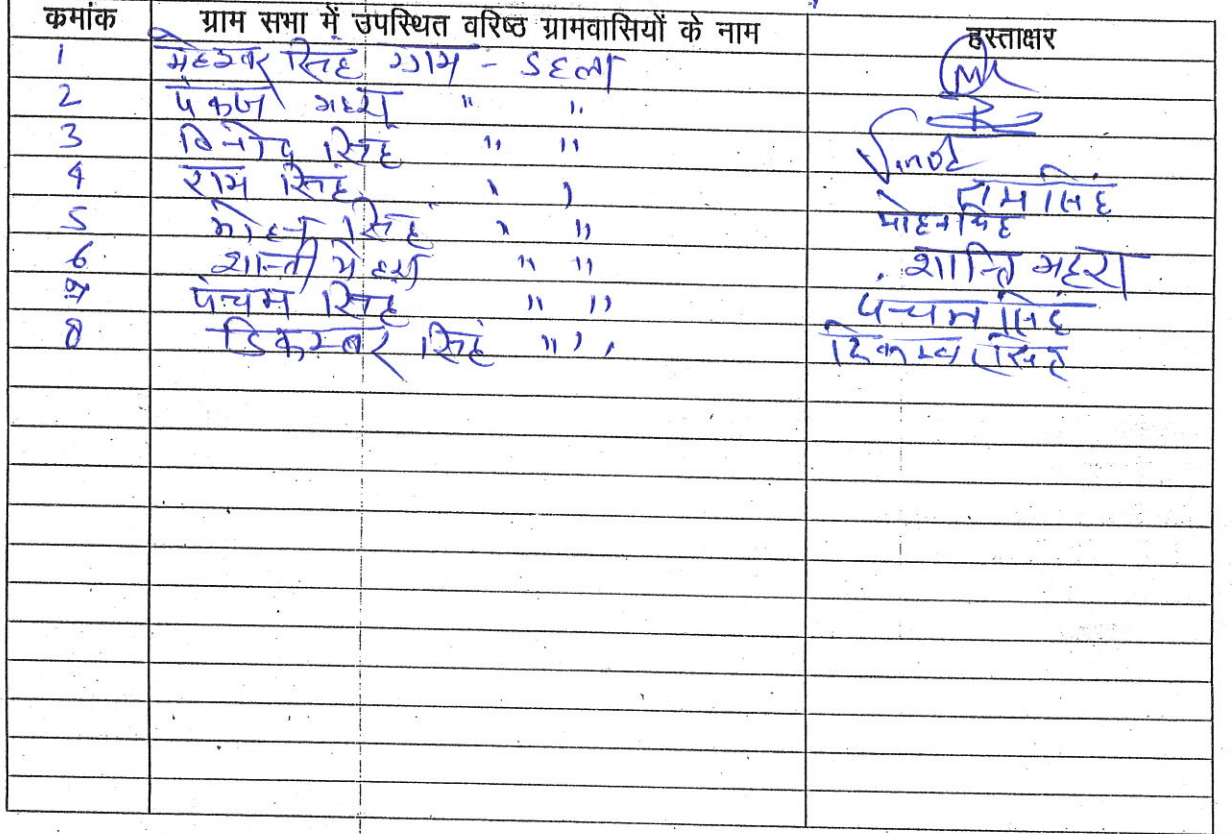 कमांक ग्राम सभा में उपस्थित वरिष्ठ ग्रामवासियों के नाम हस्ताक्षर
1 महेश्वर सिंह ग्राम -
2 पंकज महरा " "
3 विनोद सिंह " " Vinod
4 राम सिंह " " राम सिंह
5 मोहन सिंह " " मोहन सिंह
6. शान्ती मेहरा " " शान्ति महरा
7 पंचम सिंह " " पंचम सिंह
8 डिकम्बर सिंह " "